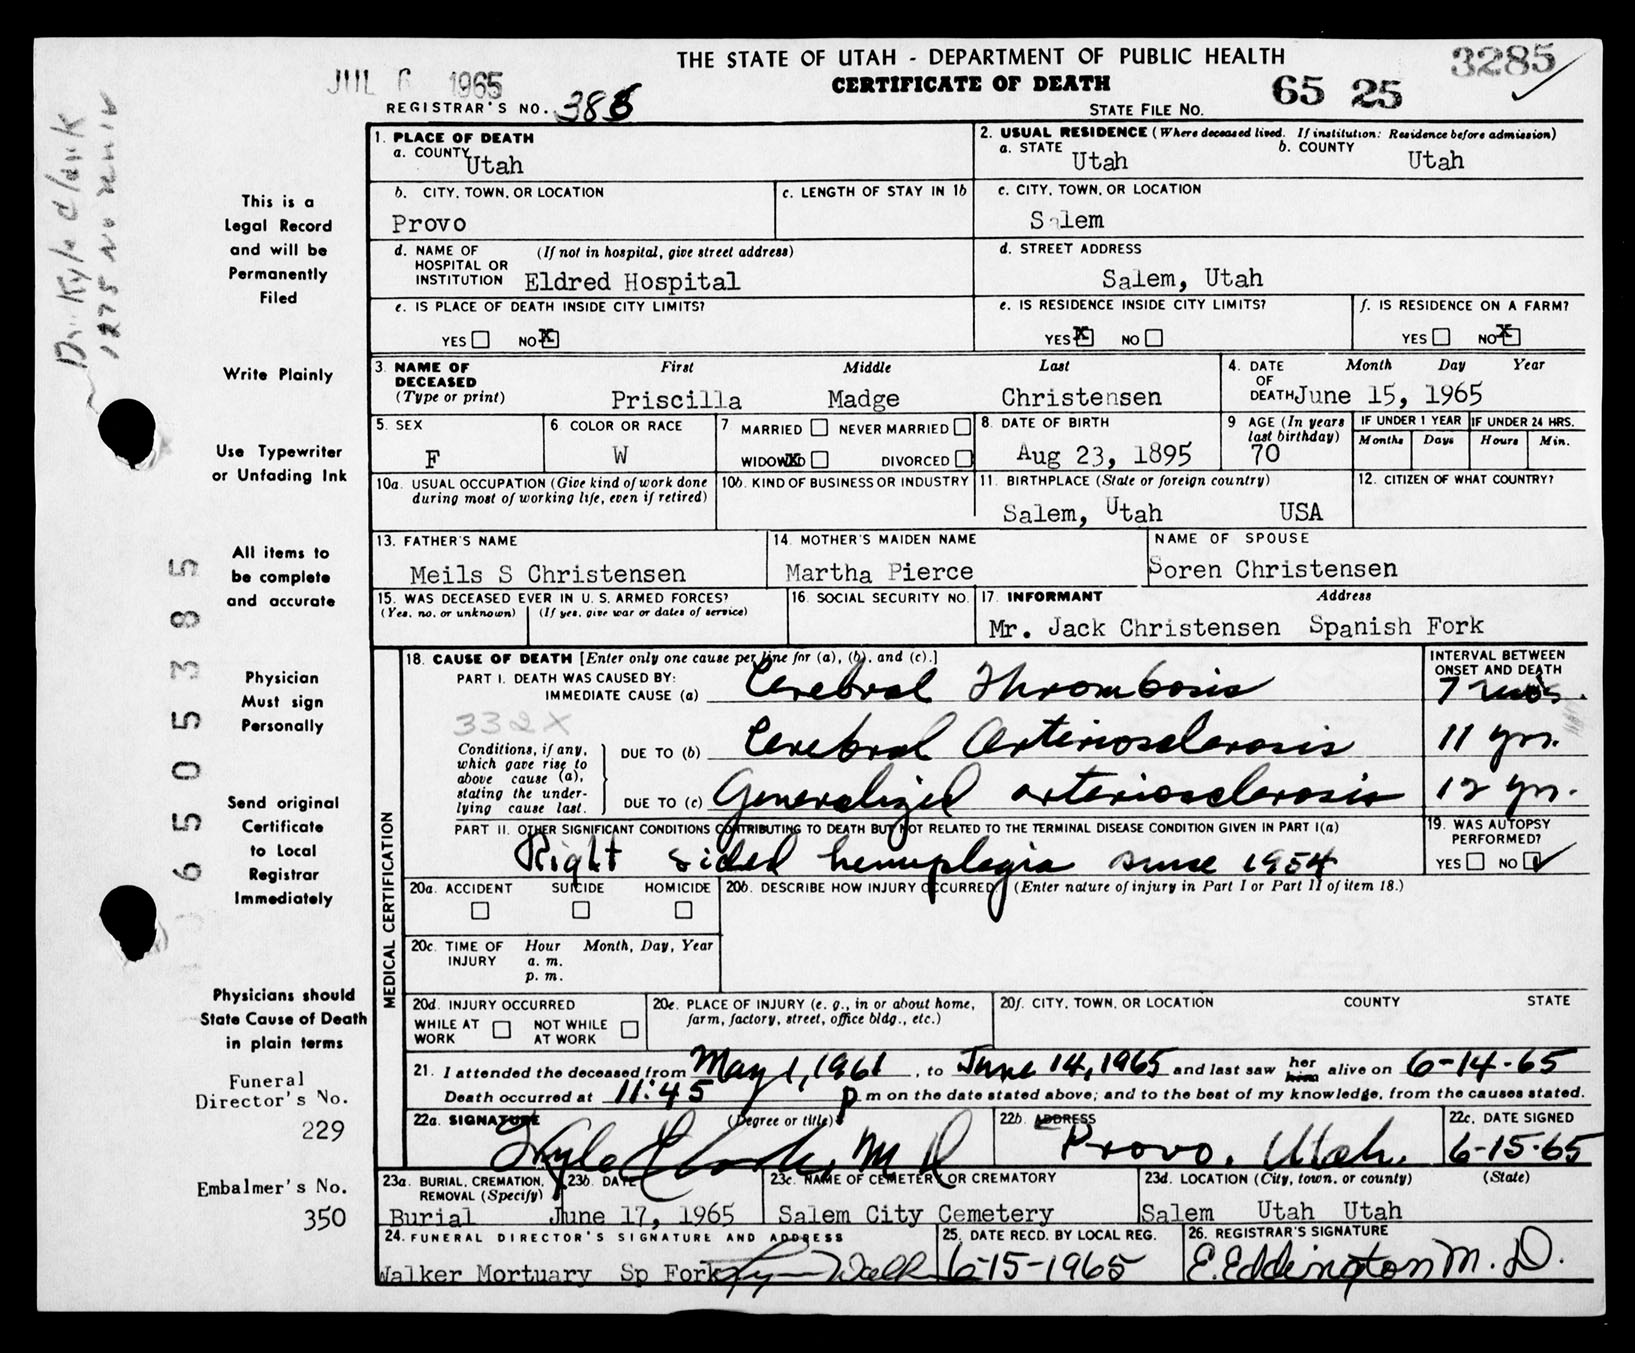 THE STATE OF UTAH - DEPARTMENT OF PUBLIC HEALTH
3285
JUL 6 1965
CERTIFICATE OF DEATH
65 25
REGISTRAR'S NO. 386
STATE FILE NO.
Dr. Kyle Clark
1275 No
This is a
Legal Record
and will be
Permanently
Filed
Write Plainly
Use Typewriter
or Unfading Ink
All items to
be complete
and accurate
Physician
Must sign
Personally
Send original
Certificate
to Local
Registrar
Immediately
Physicians should
State Cause of Death
in plain terms
Funeral
Director's No.
229
Embalmer's No.
350
6505385
1. PLACE OF DEATH
a. COUNTY Utah
2. USUAL RESIDENCE (Where deceased lived. If institution: Residence before admission)
a. STATE Utah b. COUNTY Utah
b. CITY, TOWN, OR LOCATION
Provo
c. LENGTH OF STAY IN 1b
c. CITY, TOWN, OR LOCATION
Salem
d. NAME OF HOSPITAL OR INSTITUTION (If not in hospital, give street address)
Eldred Hospital
d. STREET ADDRESS
Salem, Utah
e. IS PLACE OF DEATH INSIDE CITY LIMITS?
YES NO X
e. IS RESIDENCE INSIDE CITY LIMITS?
YES X NO
f. IS RESIDENCE ON A FARM?
YES NO X
3. NAME OF DECEASED (Type or print)
First Middle Last
Priscilla Madge Christensen
4. DATE OF DEATH Month Day Year
June 15, 1965
5. SEX
F
6. COLOR OR RACE
W
7 MARRIED NEVER MARRIED
WIDOWED X DIVORCED
8. DATE OF BIRTH
Aug 23, 1895
9 AGE (In years last birthday)
70
IF UNDER 1 YEAR
Months Days
IF UNDER 24 HRS.
Hours Min.
10a. USUAL OCCUPATION (Give kind of work done during most of working life, even if retired)
10b. KIND OF BUSINESS OR INDUSTRY
11. BIRTHPLACE (State or foreign country)
Salem, Utah USA
12. CITIZEN OF WHAT COUNTRY?
13. FATHER'S NAME
Meils S Christensen
14. MOTHER'S MAIDEN NAME
Martha Pierce
NAME OF SPOUSE
Soren Christensen
15. WAS DECEASED EVER IN U.S. ARMED FORCES?
(Yes, no, or unknown) (If yes, give war or dates of service)
16. SOCIAL SECURITY NO.
17. INFORMANT Address
Mr. Jack Christensen Spanish Fork
MEDICAL CERTIFICATION
18. CAUSE OF DEATH [Enter only one cause per line for (a), (b), and (c).]
INTERVAL BETWEEN ONSET AND DEATH
PART I. DEATH WAS CAUSED BY:
IMMEDIATE CAUSE (a) Cerebral Thrombosis 7 mos.
332X
Conditions, if any, which gave rise to above cause (a), stating the underlying cause last.
DUE TO (b) Cerebral Arteriosclerosis 11 yrs.
DUE TO (c) Generalized arteriosclerosis 12 yrs.
PART II. OTHER SIGNIFICANT CONDITIONS CONTRIBUTING TO DEATH BUT NOT RELATED TO THE TERMINAL DISEASE CONDITION GIVEN IN PART I(a)
Right sided hemiplegia since 1954
19. WAS AUTOPSY PERFORMED?
YES NO ✓
20a. ACCIDENT SUICIDE HOMICIDE
20b. DESCRIBE HOW INJURY OCCURRED. (Enter nature of injury in Part I or Part II of item 18.)
20c. TIME OF INJURY Hour Month, Day, Year
a. m.
p. m.
20d. INJURY OCCURRED
WHILE AT WORK NOT WHILE AT WORK
20e. PLACE OF INJURY (e. g., in or about home, farm, factory, street, office bldg., etc.)
20f. CITY, TOWN, OR LOCATION COUNTY STATE
21. I attended the deceased from May 1, 1961, to June 14, 1965 and last saw her him alive on 6-14-65
Death occurred at 11:45 p m on the date stated above; and to the best of my knowledge, from the causes stated.
22a. SIGNATURE (Degree or title)
Kyle Clark, M D
22b. ADDRESS
Provo, Utah.
22c. DATE SIGNED
6-15-65
23a. BURIAL, CREMATION, REMOVAL (Specify)
Burial
23b. DATE
June 17, 1965
23c. NAME OF CEMETERY OR CREMATORY
Salem City Cemetery
23d. LOCATION (City, town, or county) (State)
Salem Utah Utah
24. FUNERAL DIRECTOR'S SIGNATURE AND ADDRESS
Walker Mortuary Sp Fork
25. DATE RECD. BY LOCAL REG.
6-15-1965
26. REGISTRAR'S SIGNATURE
E. Eddington M. D.